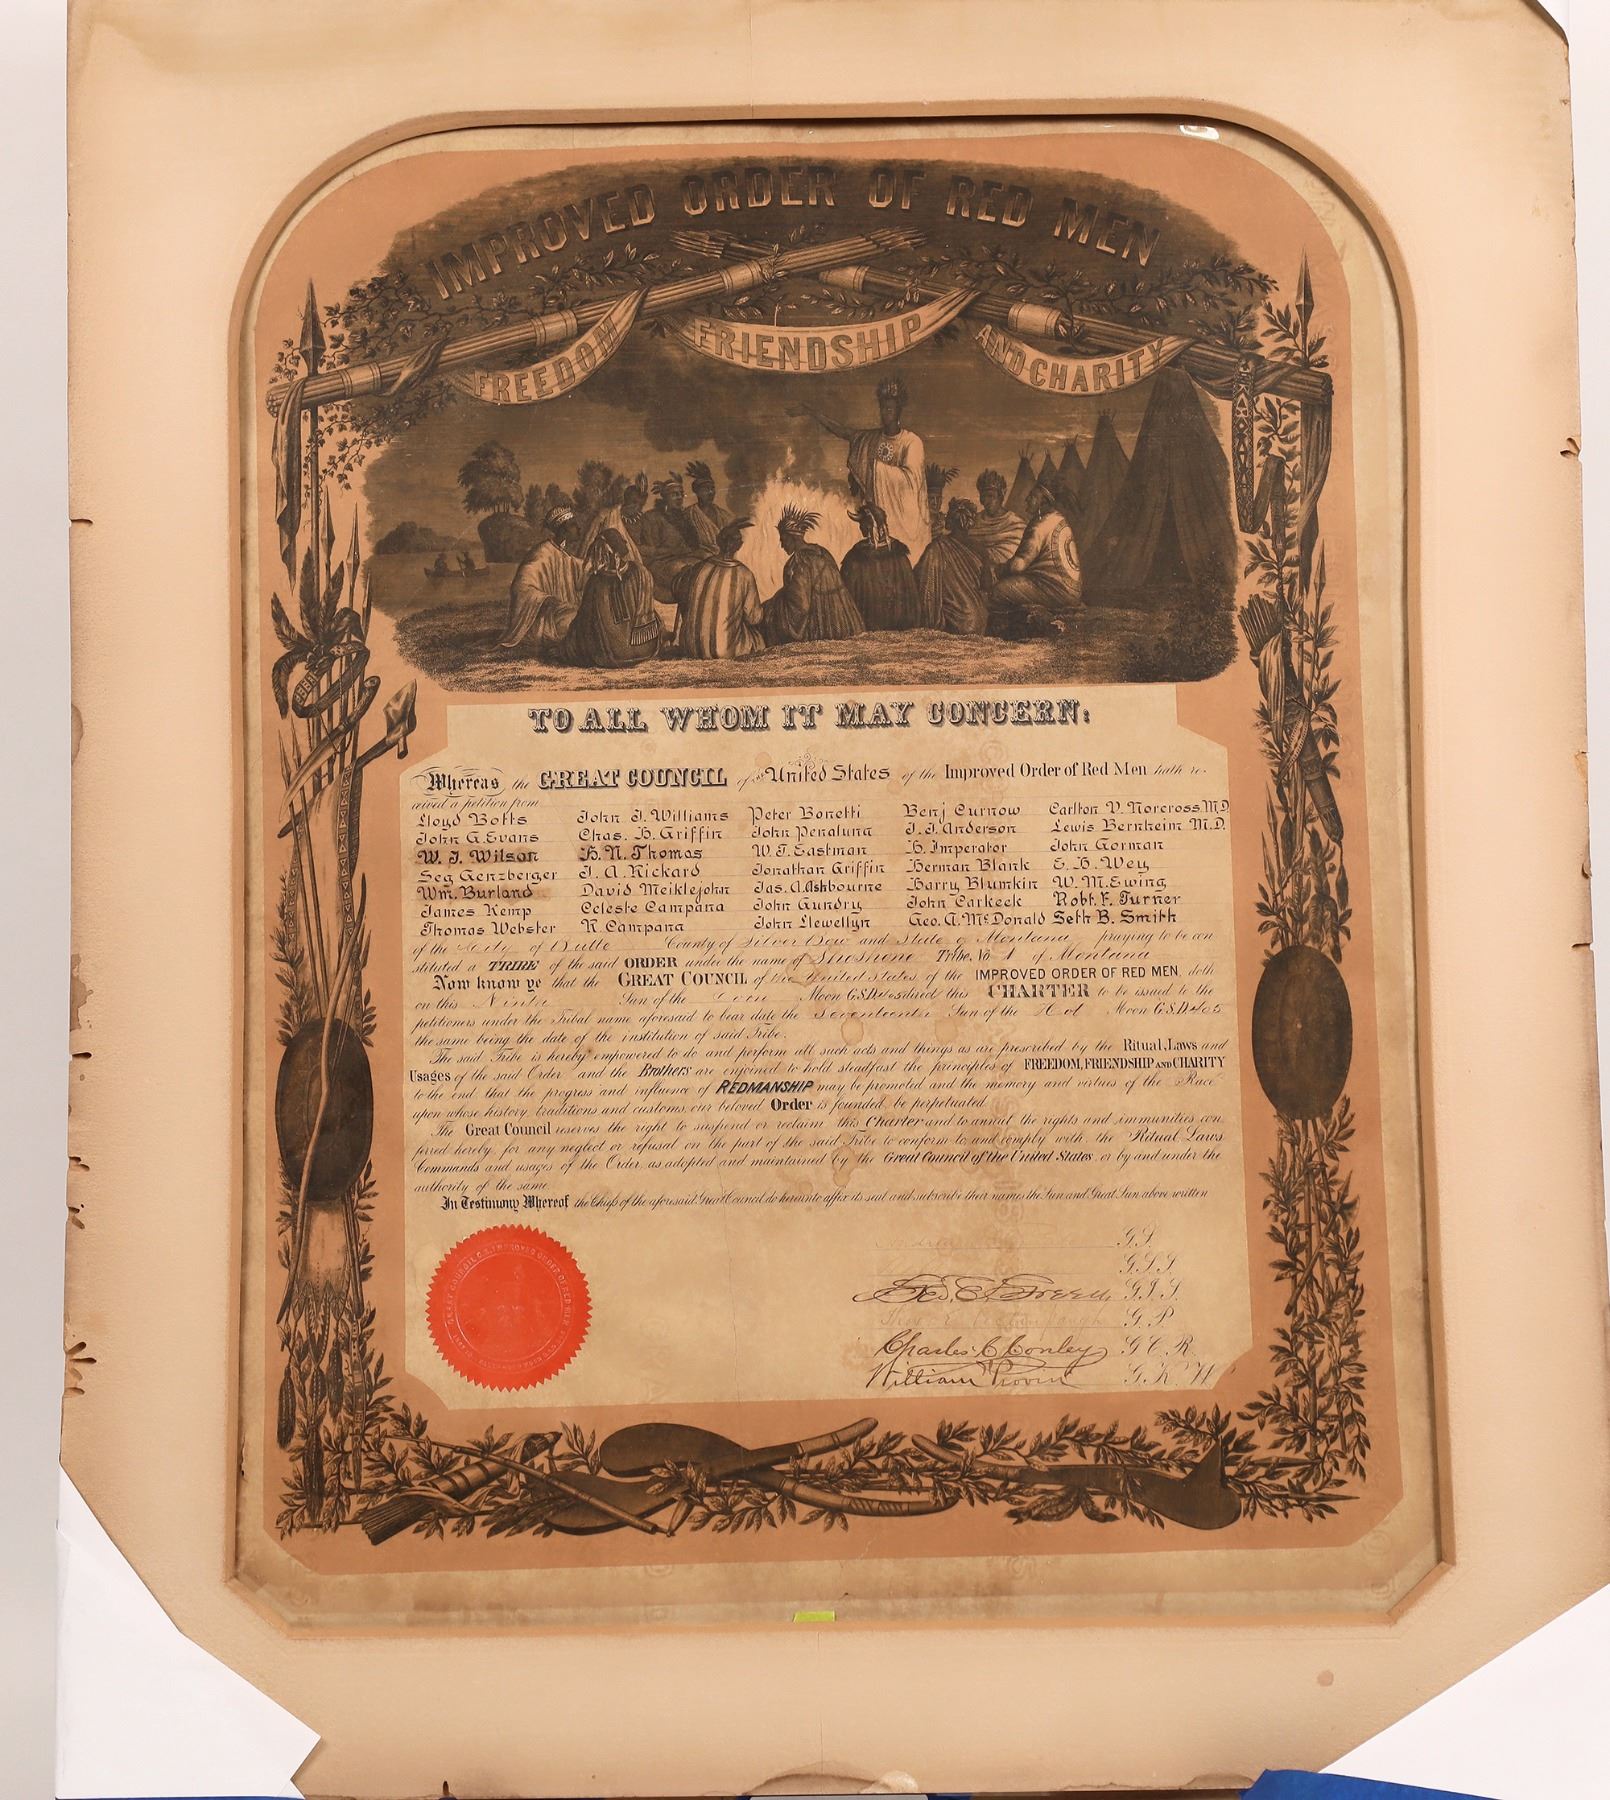 IMPROVED ORDER OF RED MEN
FREEDOM FRIENDSHIP AND CHARITY
TO ALL WHOM IT MAY CONCERN:
Whereas the GREAT COUNCIL of the United States of the Improved Order of Red Men hath re-
ceived a petition from
Lloyd Botts John J. Williams Peter Bonetti Benj Curnow Carlton V. Norcross M.D.
John G. Evans Chas. H. Griffin John Penaluna J. J. Anderson Lewis Bernheim M.D.
W. J. Wilson H. N. Thomas W. T. Eastman H. Imperator John Gorman
Seg Genzberger J. A. Rickard Jonathan Griffin Herman Blank E. H. Wey
Wm. Burland David Meiklejohn Jas. A. Ashbourne Harry Blumkin W. M. Ewing
James Kemp Celeste Campana John Gundry John Carkeek Robt. F. Turner
Thomas Webster R. Campana John Llewellyn Geo. A. McDonald Seth B. Smith
of the City of Butte County of Silver Bow and State of Montana praying to be con
stituted a TRIBE of the said ORDER under the name of Shoshone Tribe, No. 1 of Montana
Now know ye that the GREAT COUNCIL of the United States of the IMPROVED ORDER OF RED MEN, doth
on this Ninth Sun of the Corn Moon G.S.D. 405 direct this CHARTER to be issued to the
petitioners under the Tribal name aforesaid to bear date the Seventeenth Sun of the Hot Moon G.S.D. 405
the same being the date of the institution of said Tribe.
The said Tribe is hereby empowered to do and perform all such acts and things as are prescribed by the Ritual, Laws and
Usages of the said Order and the Brothers are enjoined to hold steadfast the principles of FREEDOM, FRIENDSHIP AND CHARITY
to the end that the progress and influence of REDMANSHIP may be promoted and the memory and virtues of the Race
upon whose history, traditions and customs, our beloved Order is founded, be perpetuated.
The Great Council reserves the right to suspend or reclaim this Charter and to annul the rights and immunities con
ferred hereby, for any neglect or refusal on the part of the said Tribe to conform to and comply with the Ritual Laws
Commands and usages of the Order, as adopted and maintained by the Great Council of the United States, or by and under the
authority of the same.
In Testimony Whereof the Chiefs of the aforesaid Great Council do hereunto affix its seal and subscribe their names the Sun and Great Sun above written
G.I.
G.S.S.
G.J.S.
G.P.
Charles C. Conley G.C.R.
William Provin G.K.W.
GREAT COUNCIL U.S. IMPROVED ORDER OF RED MEN